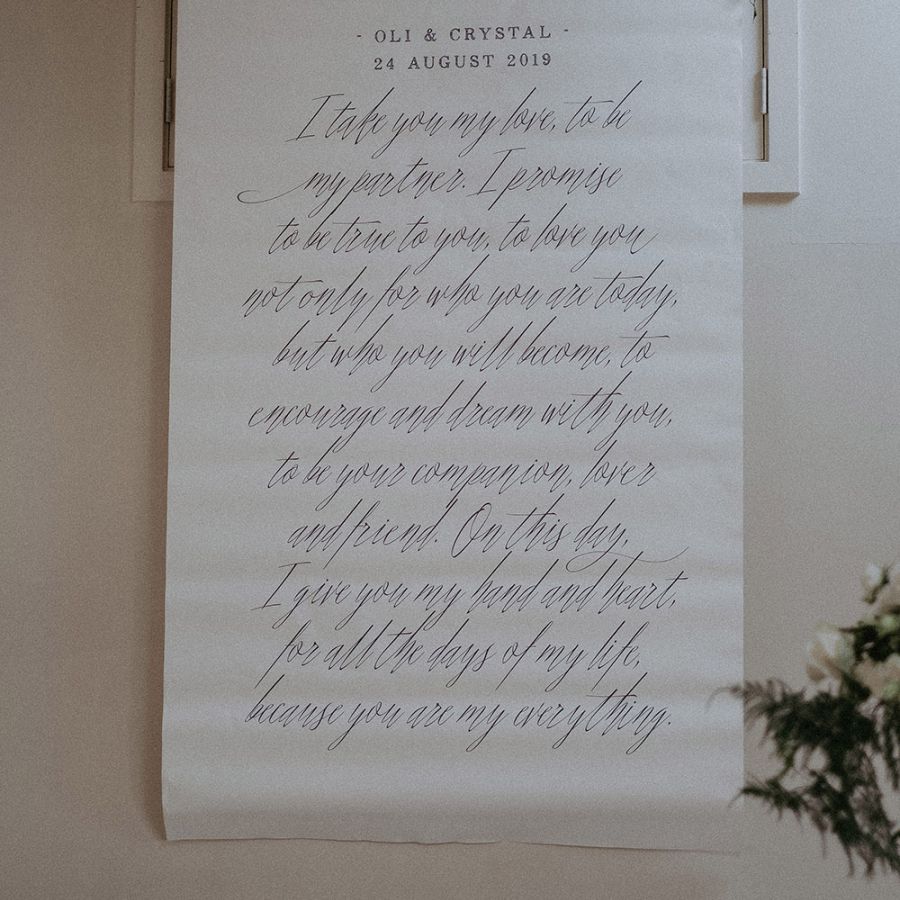 - OLI & CRYSTAL -
24 AUGUST 2019
I take you my love, to be
my partner. I promise
to be true to you, to love you
not only for who you are today,
but who you will become, to
encourage and dream with you,
to be your companion, lover
and friend. On this day,
I give you my hand and heart,
for all the days of my life,
because you are my everything.